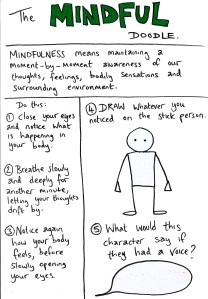 The MINDFUL
DOODLE.
MINDFULNESS means maintaining a
moment-by-moment awareness of our
thoughts, feelings, bodily sensations and
surrounding environment.
Do this:
① Close your eyes
and notice what
is happening in
your body.
② Breathe slowly
and deeply for
another minute,
letting your thoughts
drift by.
③ Notice again
how your body
feels, before
slowly opening
your eyes.
④ DRAW whatever you
noticed on the stick person.
⑤ What would this
character say if
they had a voice?